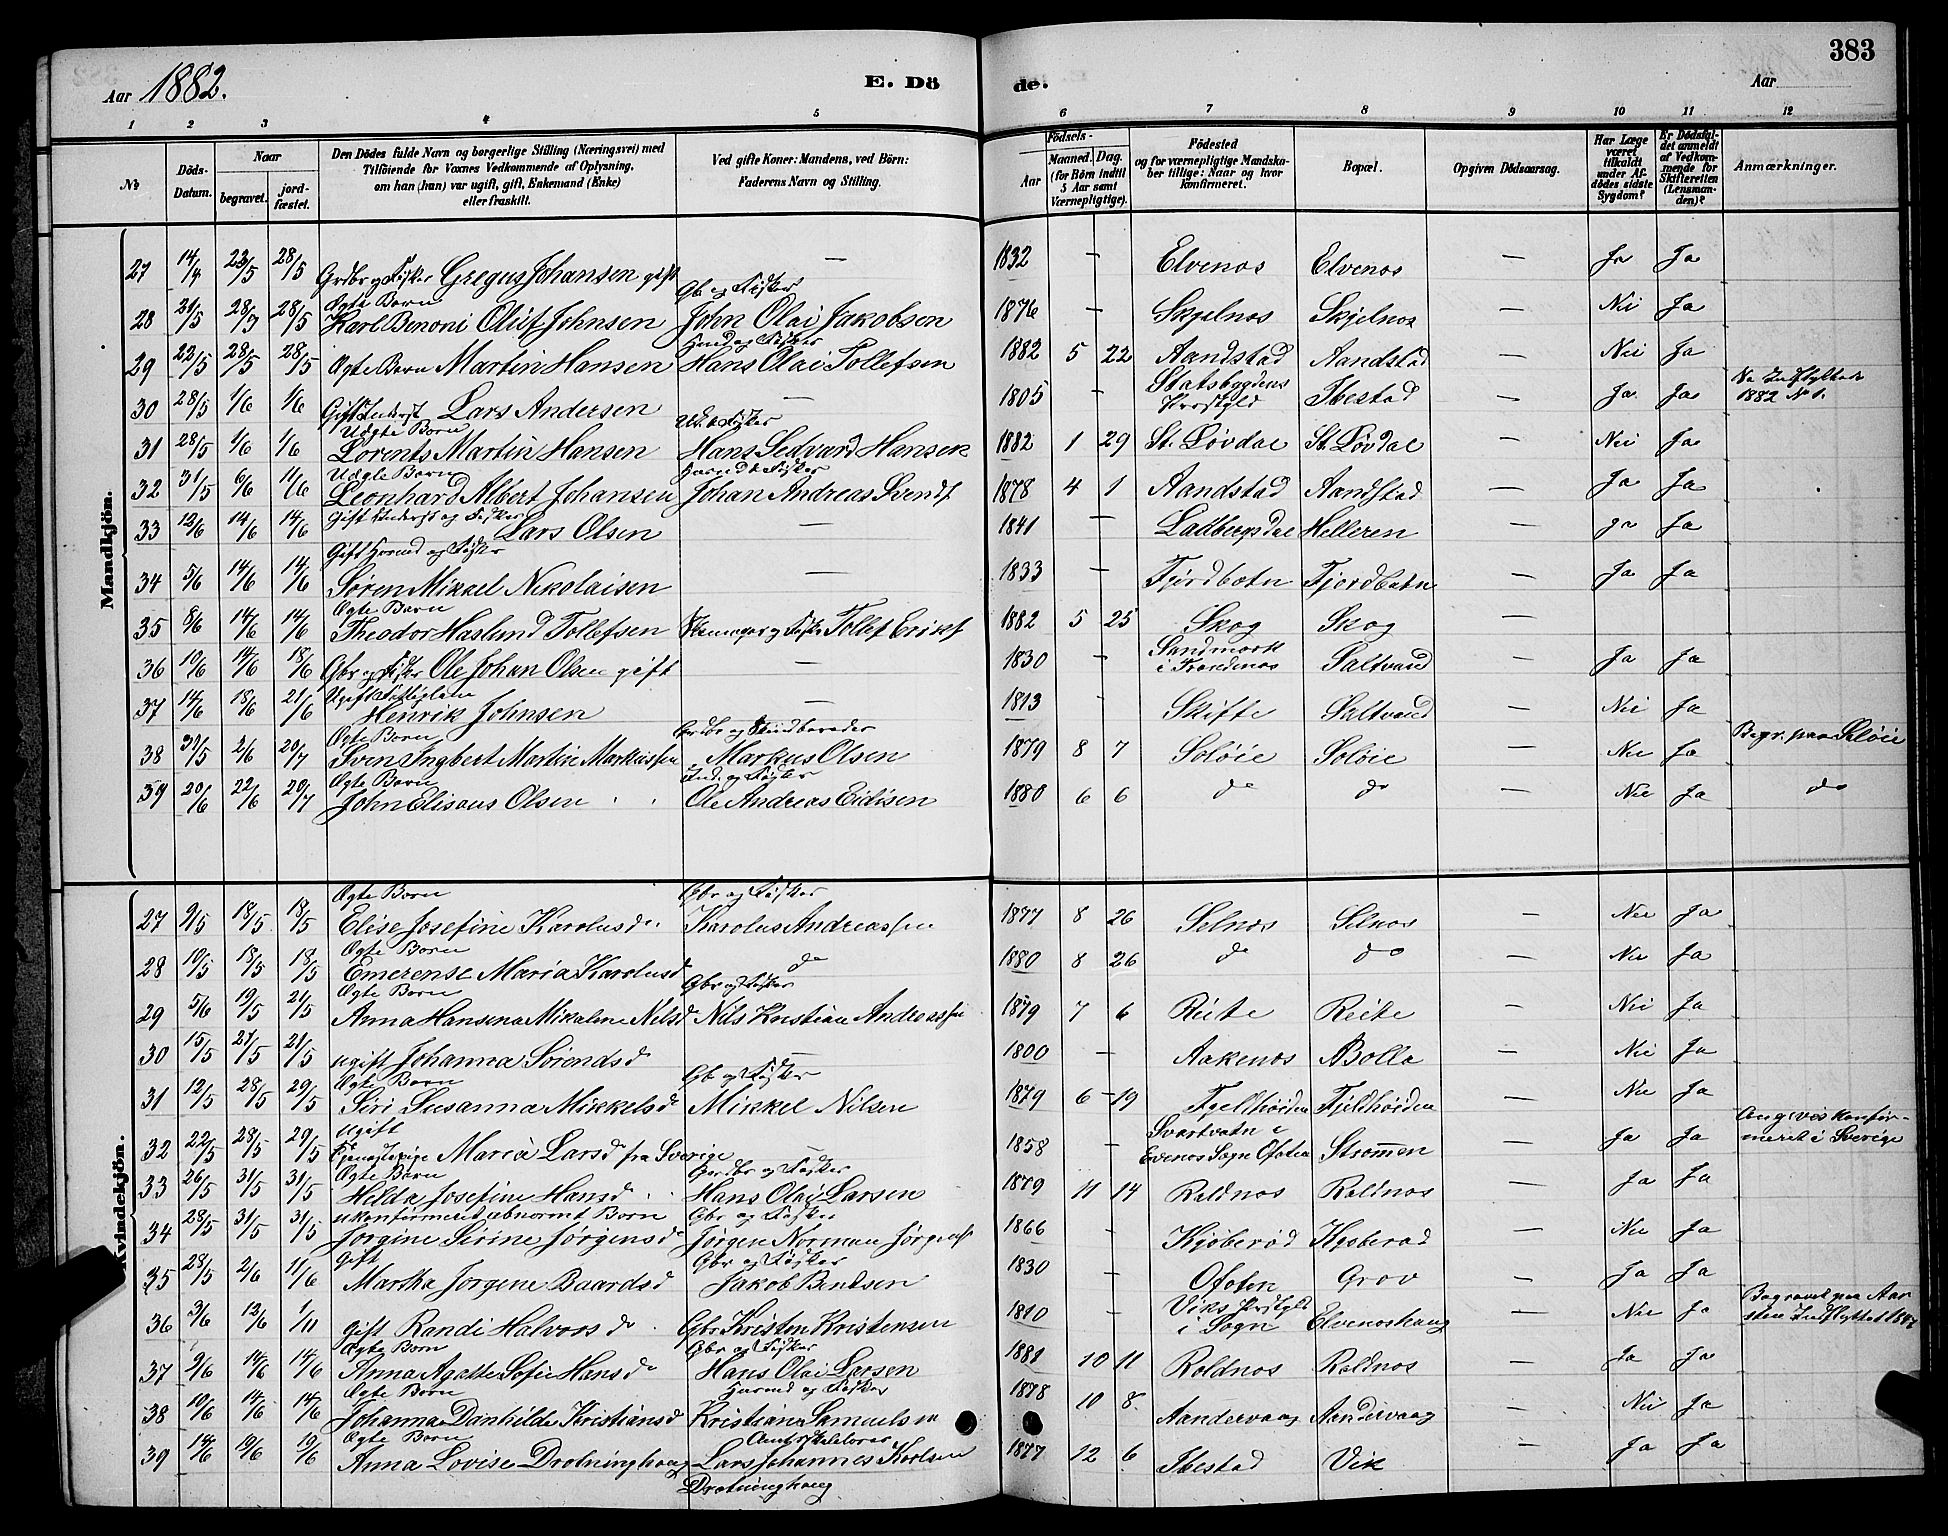 383
Aar 1882. E. Dö de. Aar
1 2 3 4 5 6 7 8 9 10 11 12
№
Döds-Datum.
Naar
begravet.
jord-fæstet.
Den Dödes fulde Navn og borgerlige Stilling (Næringsvei) med
Tilföiende for Voxnes Vedkommende af Oplysning,
om han (hun) var ugift, gift, Enkemand (Enke)
eller fraskilt.
Ved gifte Koner: Mandens, ved Börn:
Faderens Navn og Stilling.
Födsels-
Aar
Maaned. Dag.
(for Börn indtil
5 Aar samt
Værnepligtige).
Födested
og for værnepligtige Mandska-
ber tillige: Naar og hvor
konfirmeret.
Bopæl.
Opgiven Dödsaarsag.
Har Læge
været
tilkaldt
under Af-
dödes sidste
Sygdom?
Er Dödsfal-
det anmeldt
af Vedkom-
mende for
Skifteretten
(Lensman-
den)?
Anmærkninger.
Mandkjön.
27 14/4 23/5 28/5 Grdbr og Fisker Gregus Johansen gift — 1832 — Elvenes Elvenes — Ja Ja
Ægte Barn Gb og Fisker
28 21/5 28/5 28/5 Karl Benoni Oluf Johnsen John Olai Jakobsen 1876 — Skjelnes Skjelnes — Nei Ja
29 22/5 28/5 28/5 Ægte Barn Martin Hansen Hans Olai Tollefsen 1882 5 22 Aandstad Aandstad — Nei Ja
30 28/5 1/6 1/6 Gift Inderst Lars Andersen — 1805 — Statsbygdens Prestgld Ibestad — Ja Ja 1882 No 1.
Uægte Barn
31 28/5 1/6 1/6 Lorents Martin Hansen Hans Sedvard Hansen 1882 1 29 St. Løvdal St. Løvdal — Nei Ja
Uægte Barn
32 31/5 6/6 11/6 Leonhard Albert Johansen Johan Andreas Svends. 1878 4 1 Aandstad Aandstad — Ja Ja
Gift Inderst og Fisker
33 12/6 14/6 14/6 Lars Olsen — 1841 — Ladbergsdal Helleren — Ja Ja
Gift Husmd og Fisker
34 5/6 14/6 14/6 Søren Mikkel Nikolaisen — 1833 — Fjordbotn Fjordbotn — Ja Ja
Ægte Barn
35 8/6 14/6 14/6 Theodor Haslund Tollefsen Skomager og Fisker Tollef Eriks. 1882 5 25 Skog Skog —
36 10/6 14/6 18/6 Gbr og Fisker Ole Johan Olsen gift — 1830 — Sandmark i Trondenes Saltvand — Ja Ja
Ugift Fattiglem
37 14/6 18/6 21/6 Henrik Johnsen — 1813 — Skifte Saltvand — Nei Ja
Ægte Barn
38 31/5 2/6 20/7 Sven Ingbert Martin Markussen Markus Olsen 1879 8 7 Seløie Seløie — Nei Ja Begr. paa Seløie
Ægte Barn Ind. og Fisker
39 20/6 22/6 20/7 John Elisæus Olsen Ole Andreas Eidisen 1880 6 6 do do — Nei Ja do
Kvindekjön.
Ægte Barn Gbr og Fisker
27 9/5 18/5 18/5 Elise Josefine Karolusdr. Karolus Andreassen 1877 8 26 Selnes Selnes — Nei Ja
Ægte Barn
28 10/5 18/5 18/5 Emerense Maria Karolusd. do 1880 8 26 do do — Nei Ja
Ægte Barn Gbr og Fisker
29 5/6 19/5 21/5 Anna Hansena Mikaline Nilsd Nils Kristian Andreassen 1879 7 6 Reite Reite — Nei Ja
30 15/5 21/5 21/5 ugift Johanna Sørendsdr — 1800 — Aakenes Bolla — Nei Ja
Ægte Barn Gb og Fisker
31 12/5 28/5 29/5 Siri Susanna Mikkelsdr Mikkel Nilsen 1879 6 19 Fjeldhøiden Fjeldhøiden — Nei Ja
ugift
32 22/5 28/5 29/5 Tjenestepige Maria Larsdr fra Sverige — 1858 — Svartvatn i Evenes Sogn Ofoten Strømmen — Ja Ja Angives konfirmeret i Sverige
Ægte Barn Gardbr og Fisker
33 26/5 31/5 31/5 Helda Josefine Hansdr Hans Olai Larsen 1879 11 14 Roldnes Roldnes — Ja Ja
ukonfirmered abnormt Barn Gbr og Fisker
34 28/5 31/5 31/5 Jørgine Serine Jørgensdr Jørgen Norman Jørgens. 1866 — Kjøberød Kjøberød — Nei Ja
Gift Gbr og Fisker
35 28/5 2/6 11/6 Martha Jørgene Baardsdr Jakob Bendsen 1830 — Ofoten Grov — Ja Ja
36 3/6 12/6 1/11 Gift Randi Halvorsdr Gbr Kristen Kristensen 1810 — Viks Prestgld i Sogn Elvenoshaug — Nei Ja
Ægte Barn Gbr og Fisker
37 9/6 14/6 14/6 Anna Agathe Sofie Hansdr Hans Olai Larsen 1881 10 11 Roldnes Roldnes — Ja Ja
Ægte Barn Husmd og Fisker
38 10/6 14/6 14/6 Johanna Danhilde Kristiansd Kristian Samuelsen 1878 10 8 Aandervaag Aandervaag — Nei Ja
Ægte Barn Amtsskolelærer
39 14/6 19/6 19/6 Anna Lovise Drotninghaug Lars Johannes Karlsen 1877 12 6 Ibestad Vik — Ja Ja
Drotninghaug